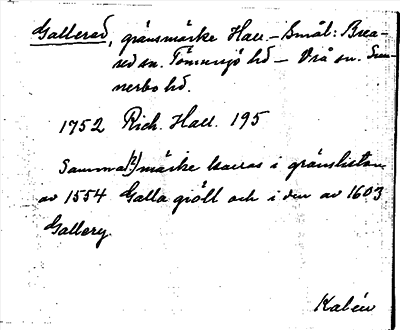 Gallered, gränsmärke Hall. - Smål: Brea-
red sn. Tönnersjö hd - Vrå sn. Sun-
nerbo hd.
1752 Rich. Hall. 195
Samma(?) märke kallas i gränslistan
av 1554 Galla gröll och i den av 1603
Gallery.
Kalén